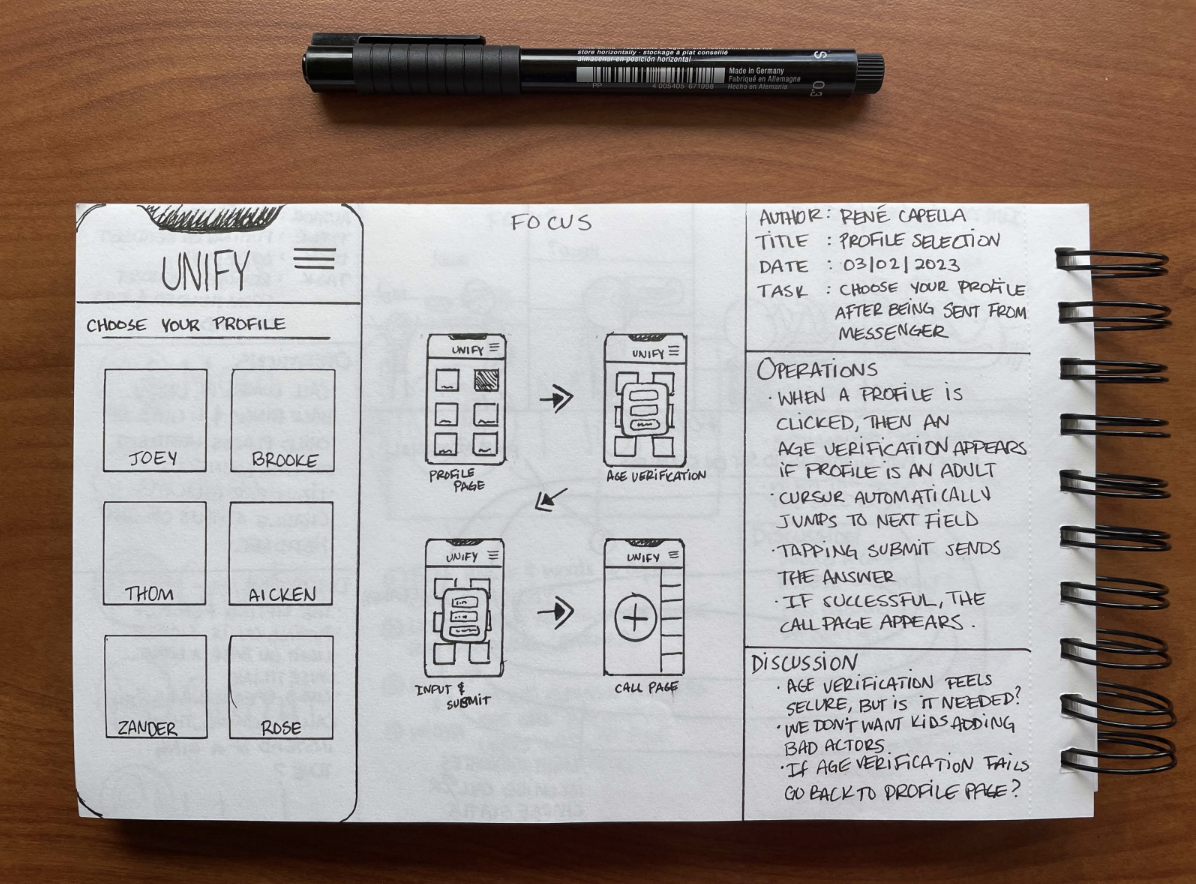 store horizontally · stockage à plat conseillé
almacenar en posición horizontal
Made in Germany
Fabriqué en Allemagne
Hecho en Alemania
PP
4 005405 671998
S 0.3
UNIFY
CHOOSE YOUR PROFILE
JOEY
BROOKE
THOM
AICKEN
ZANDER
ROSE
FOCUS
UNIFY
PROFILE
PAGE
UNIFY
AGE VERIFICATION
UNIFY
INPUT &
SUBMIT
UNIFY
CALL PAGE
AUTHOR : RENÉ CAPELLA
TITLE : PROFILE SELECTION
DATE : 03/02/2023
TASK : CHOOSE YOUR PROFILE
AFTER BEING SENT FROM
MESSENGER
OPERATIONS
· WHEN A PROFILE IS
CLICKED, THEN AN
AGE VERIFICATION APPEARS
IF PROFILE IS AN ADULT
· CURSUR AUTOMATICALLY
JUMPS TO NEXT FIELD
· TAPPING SUBMIT SENDS
THE ANSWER
· IF SUCCESSFUL, THE
CALL PAGE APPEARS.
DISCUSSION
· AGE VERIFICATION FEELS
SECURE, BUT IS IT NEEDED?
· WE DON'T WANT KIDS ADDING
BAD ACTORS
· IF AGE VERIFICATION FAILS
GO BACK TO PROFILE PAGE?